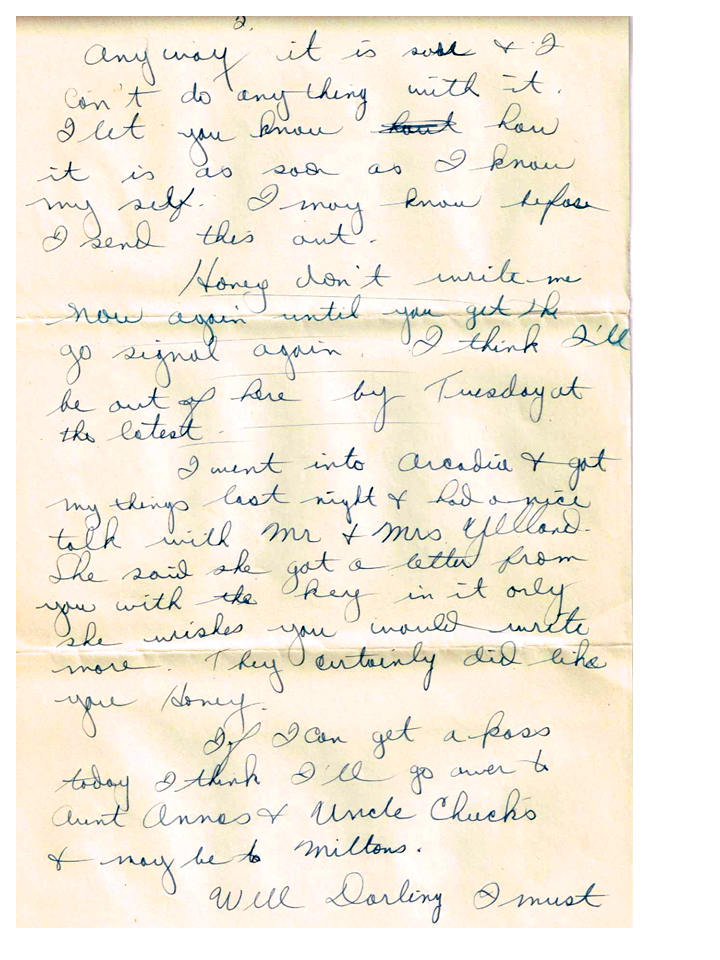 2.
Anyway it is so & I
can't do any thing with it.
I let you know how
it is as soon as I know
my self. I may know before
I send this out.
Honey don't write me
now again until you get the
go signal again. I think I'll
be out of here by Tuesday at
the latest.
I went into Arcadia & got
my things last night & had a nice
talk with Mr & Mrs Yelland.
She said she got a letter from
you with the key in it only
she wishes you would write
more. They certainly did like
you Honey.
If I can get a pass
today I think I'll go over to
Aunt Annas & Uncle Chucks
& may be to Miltons.
Well Darling I must